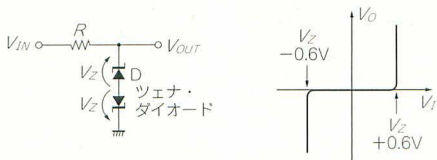 R
V_IN
V_OUT
V_Z
D
V_Z
ツェナ・
ダイオード
V_O
V_Z
−0.6V
V_I
V_Z
+0.6V